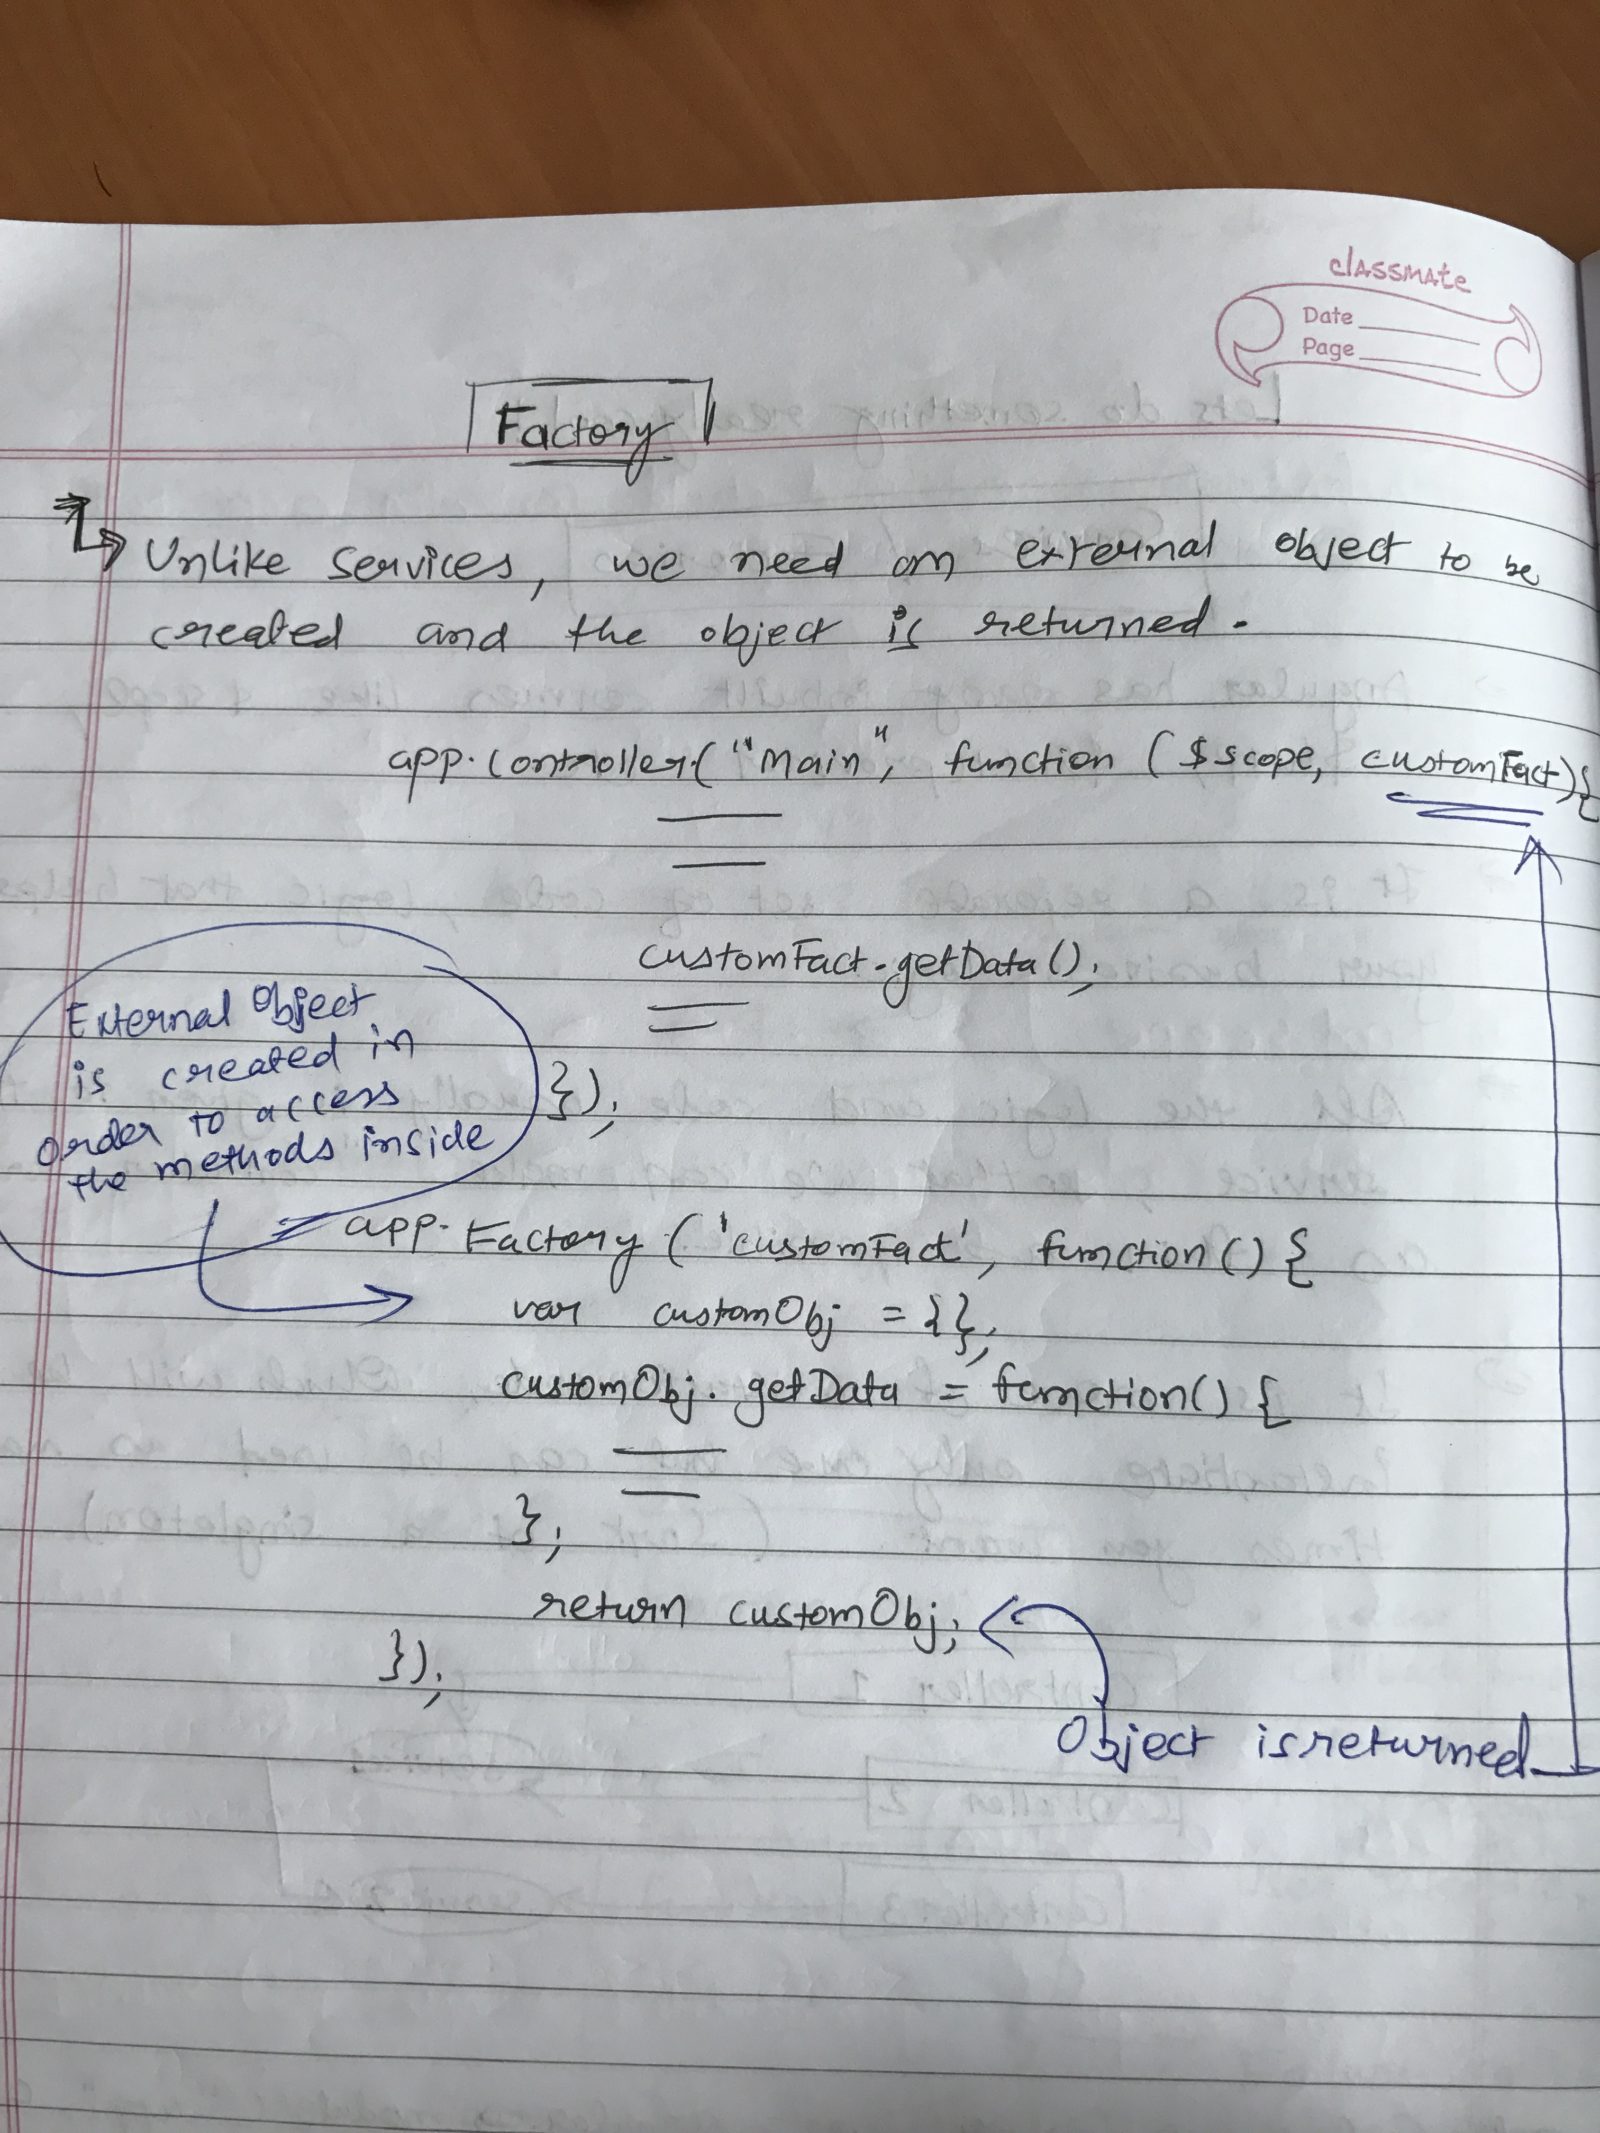 classmate
Date
Page
Factory
Unlike services, we need an external object to be
created and the object is returned.
app.controller("Main", function ($scope, customFact){
customFact.getData();
});
External Object
is created in
order to access
the methods inside
app.Factory('customFact', function() {
var customObj = {};
customObj.getData = function() {
};
return customObj;
});
Object is returned